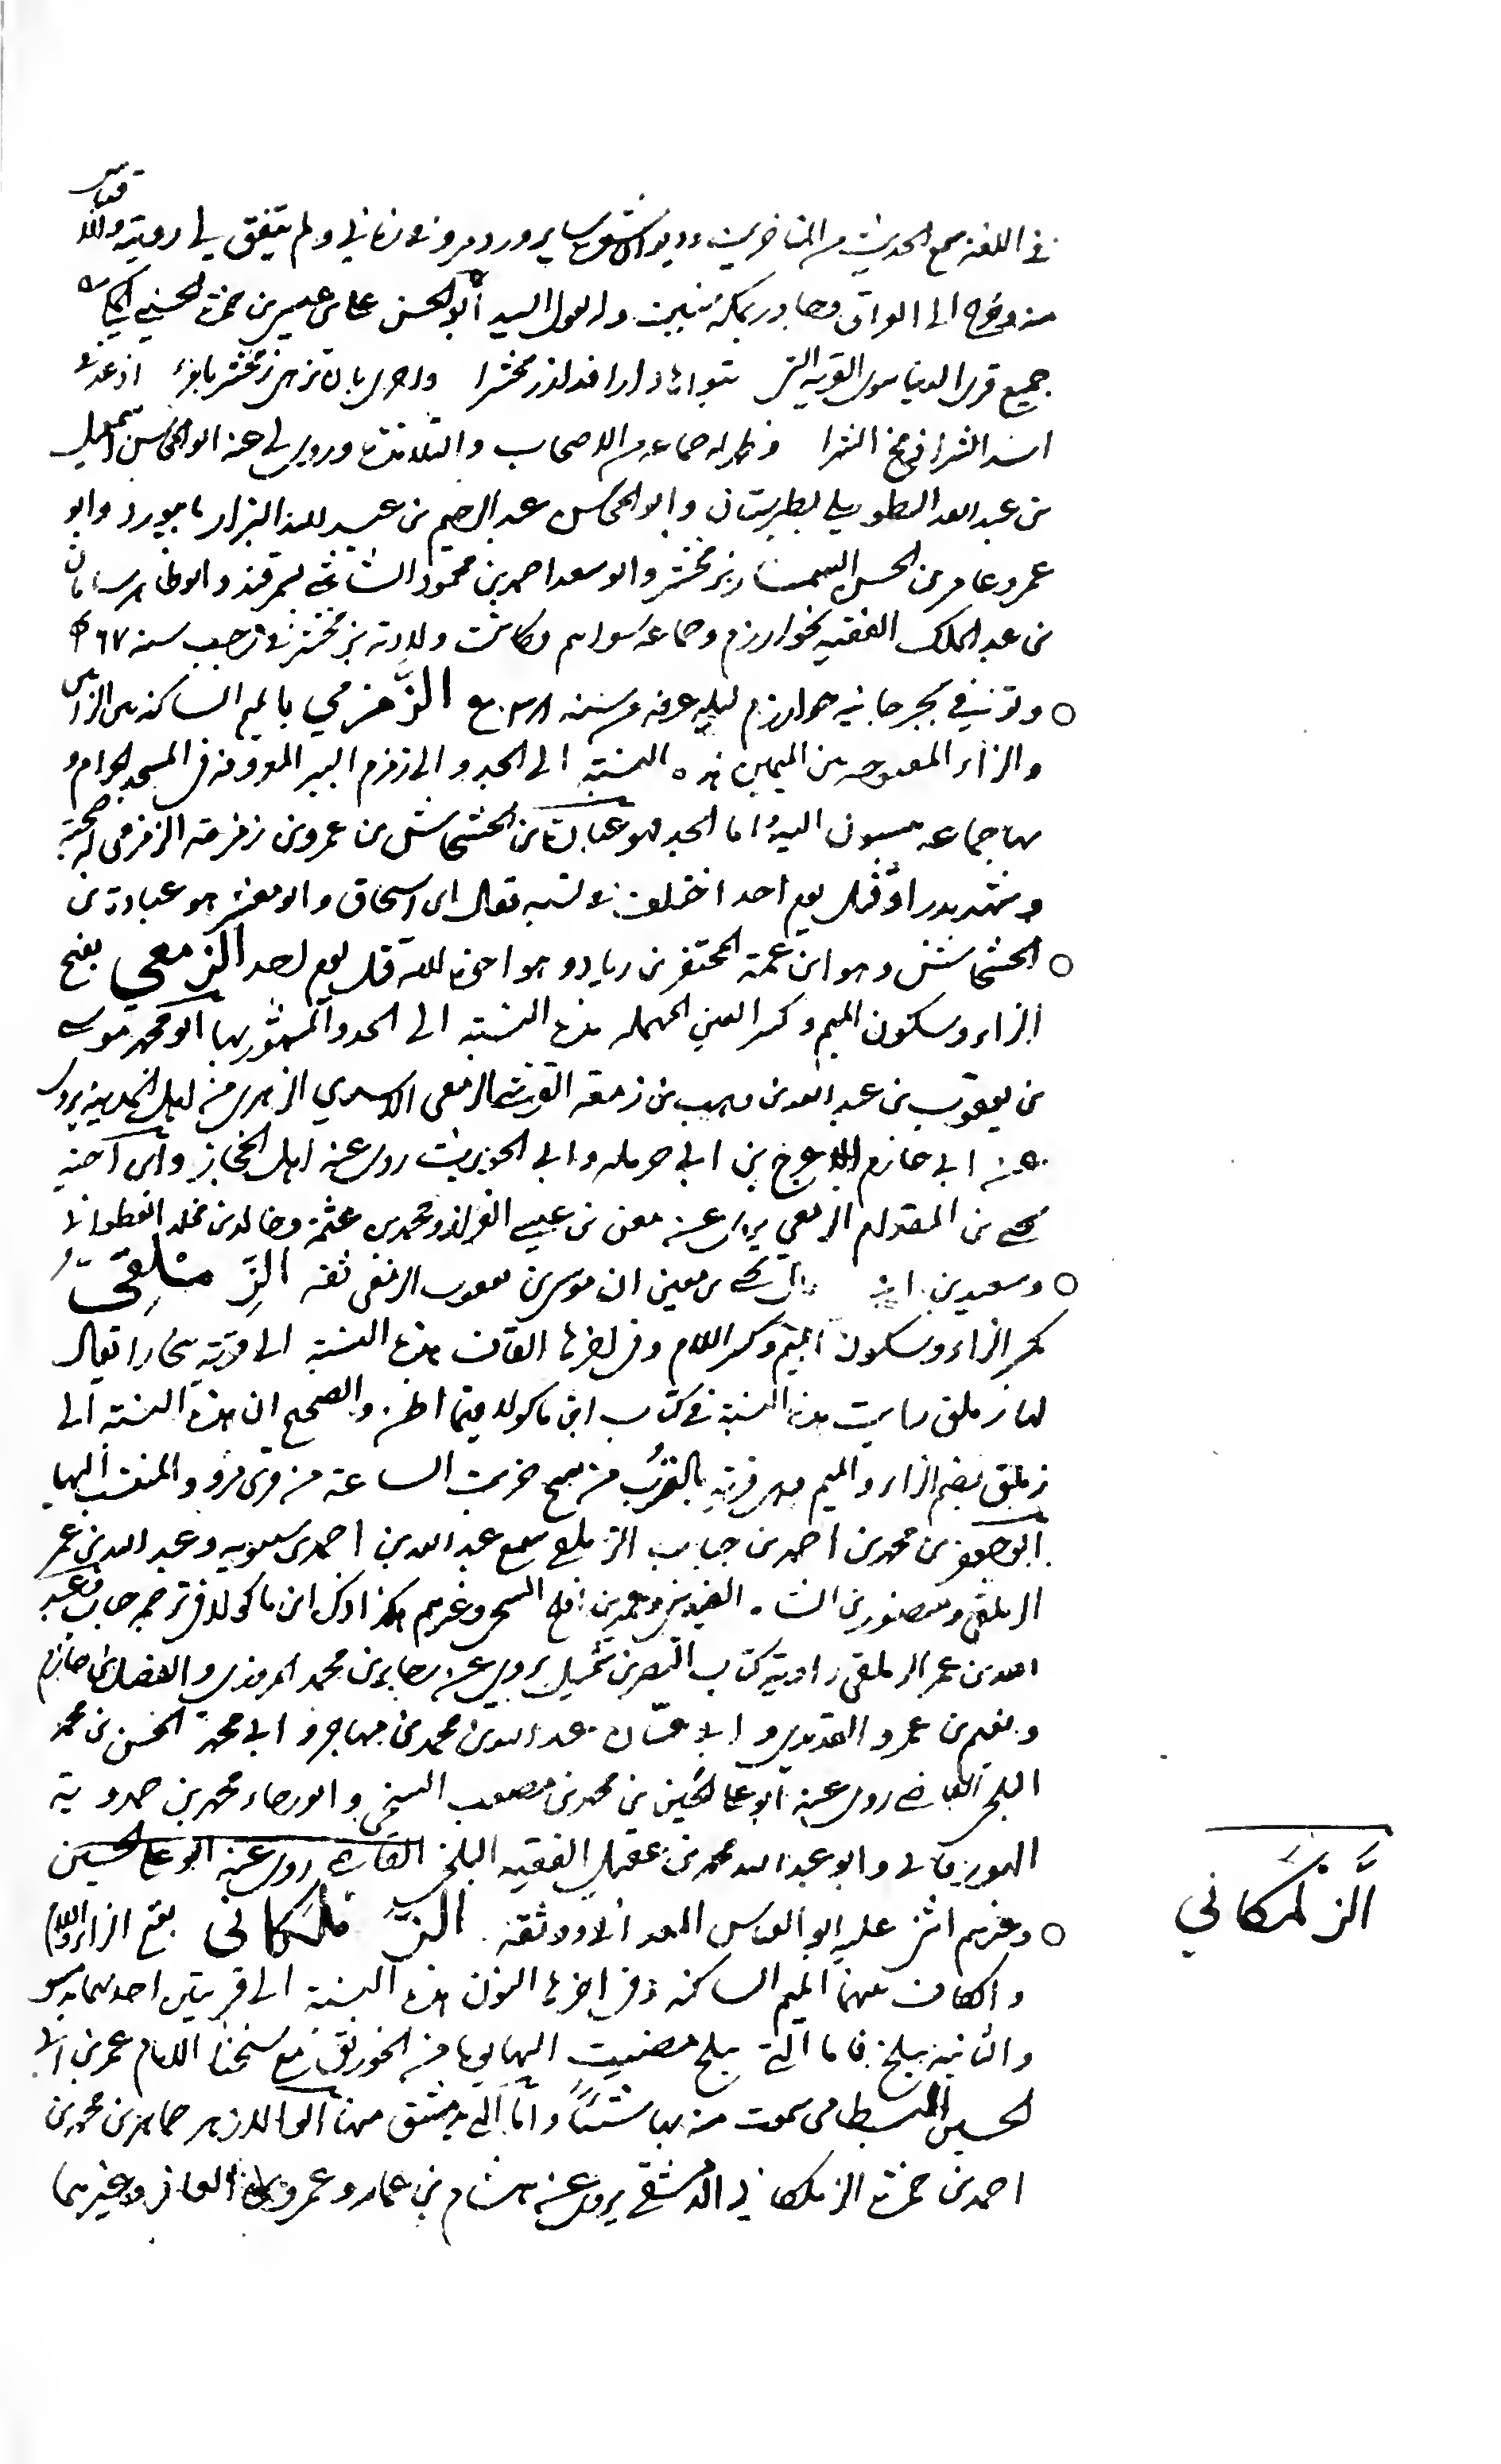 في اللغة سمع الحديث من المتاخرين وديوان شعره سائر ورد مرو في زماني ولم يتفق لي رويته ولقاه
منه وخرج الى العراق وجاور بمكة سنين وله يقول السيد ابو الحسن علي بن عيسى بن حمزة الحسني المكي
جميع قرى الدنيا سوى القرية التي تبواها دارا فدا زمخشرا واحرى بان تزهى زمخشر بامرء اذا عد في
اسد الشرى زمخ الشرا وظهر له جماعة من الاصحاب والتلامذة وروى لي عنه ابو المحاسن اسمعيل
بن عبد الله الطويلي بطبرستان وابو المحاسن عبد الرحيم بن عبد الله البزار بابيورد وابو
عمرو عامر بن الحسن السمسار بزمخشر وابو سعد احمد بن محمود الشاشي بسمرقند وابو طاهر سامان
بن عبد الملك الفقيه بخوارزم وجماعة سواهم وكانت ولادته بزمخشر في رجب سنة ٤٦٧
وتوفي بجرجانية خوارزم ليلة عرفة من سنة ٥٣٨ الزَّمزمي بالميم الساكنة بين الزاءين
والزاء المفتوحة بين الميمين هذه النسبة الى الجد والى زمزم البير المعروفة في المسجد الحرام و
بها جماعة ينسبون اليه واما الجد فهو عبادة بن الخشخاش بن عمرو بن زمزمة الزمزمي له صحبة
وشهد بدرا وقتل يوم احد اختلف في نسبه فقال ابن اسحاق وابو معشر هو عبادة بن
الخشخاش وهو ابن عمة المجذر بن زياد وهو اخوه لامه قتل يوم احد الزمعي بفتح
الزاء وسكون الميم وكسر العين المهملة هذه النسبة الى الجد والمشهور بها ابو محمد موسى
بن يعقوب بن عبد الله بن وهب بن زمعة القرشي الزمعي الاسدي الزهري من اهل المدينة يروي
عن ابي حازم الاعرج بن ابي حرملة وابي الحويرث روى عنه اهل الحجاز وابن اخيه
يحيى بن المقدام الزمعي يروي عنه معن بن عيسى القزاز ومحمد بن عثمة وخالد بن مخلد القطواني
وسعيد بن قال يحيى بن معين ان موسى بن يعقوب الزمعي ثقة الزِّمْلِقيّ
بكسر الزاء وسكون الميم وكسر اللام وفي اخرها القاف هذه النسبة الى قرية ببخارا يقال
لها زملق رايت هذه النسبة في كتاب ابن ماكولا فيما اظن والصحيح ان هذه النسبة الى
زملق بضم الزاء والميم وهي قرية بالقرب من سنج خربت الساعة من قرى مرو والمنتسب اليها
ابو جعفر بن محمد بن احمد بن حباب الزملقي سمع عبد الله بن احمد بن شبويه وعبد الله بن عمر
الزملقي ومنصور بن الشاه وغيرهم هكذا ذكر ابن ماكولا في ترجمة حباب عبد
الله بن عمر الزملقي راوية كتاب النضر بن شميل يروي عنه رجاء بن محمد المروزي والفضل بن حازم
ونعيم بن عمرو القديدي وابي غسان عبد الله بن محمد بن مهاجر وابي محمد الحسن بن محمد
البلخي القاضي روى عنه ابو علي الحسين بن محمد بن مصعب السنجي وابو رجاء محمد بن حمدوية
الهورقاني وابو عبد الله محمد بن عقيل الفقيه البلخي القاضي روى عنه ابو علي الحسين
وغيرهم اثنى عليه ابو العباس المعداني ووثقه الزَّملكاني بفتح الزاء واللام
والكاف بينهما الميم الساكنة وفي اخرها النون هذه النسبة الى قريتين احدهما بدمشق
والثانية ببلخ فاما التي ببلخ مضيت اليها يوما من الخورنق مع شيخنا الامام عمر بن ابي
الحسن البسطامي سمعت منه بها شيئا واما التي بدمشق منها ابو الازهر جماهر بن محمد بن
احمد بن حمزة الزملكاني الدمشقي يروي عنه هشام بن عمار وعمرو بن الغاز وغيرهما
الزَّمْلَكاني